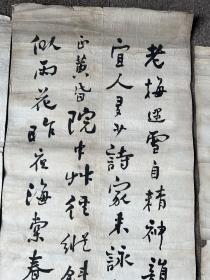 老梅遇雪自精神韻
宜人多少詩家未詠
正黃昏院中艸径縱斜
似雨花昨夜海棠春